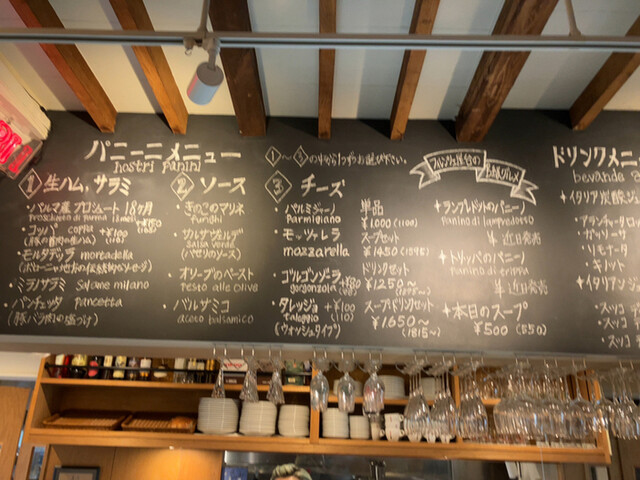 パニーニメニュー
nostri panini
①〜③の中から1つずつお選び下さい。
1 生ハム、サラミ
・パルマ産プロシュート 18ヶ月
・コッパ coppa +¥100
・モルタデッラ mortadella
・ミラノサラミ Salame milano
・パンチェッタ pancetta
(豚バラ肉の塩づけ)
2 ソース
・きのこのマリネ
funghi
・サルサヴェルデ
salsa verde
(パセリのソース)
・オリーブのペースト
pesto alle olive
・バルサミコ
aceto balsamico
3 チーズ
・パルミジャーノ
parmigiano
・モッツァレラ
mozzarella
・ゴルゴンゾーラ
gorgonzola +¥80
・タレッジョ +¥100
taleggio
(ウォッシュタイプ)
単品
¥1000 (1100)
スープセット
¥1450 (1595)
ドリンクセット
¥1250〜
スープ&ドリンクセット
¥1650〜
(1815〜)
フィレンツェ屋台の
+ランプレドットのパニーノ
panino di lampredotto
近日発売
+トリッパのパニーノ
panino di trippa
近日発売
+本日のスープ
¥500 (550)
ドリンクメニ
bevande
+イタリア炭酸ジ
・アランチャータ
・リモナータ
・キノット
+イタリアンジ
・スッコ
・スッコ
・スッコ